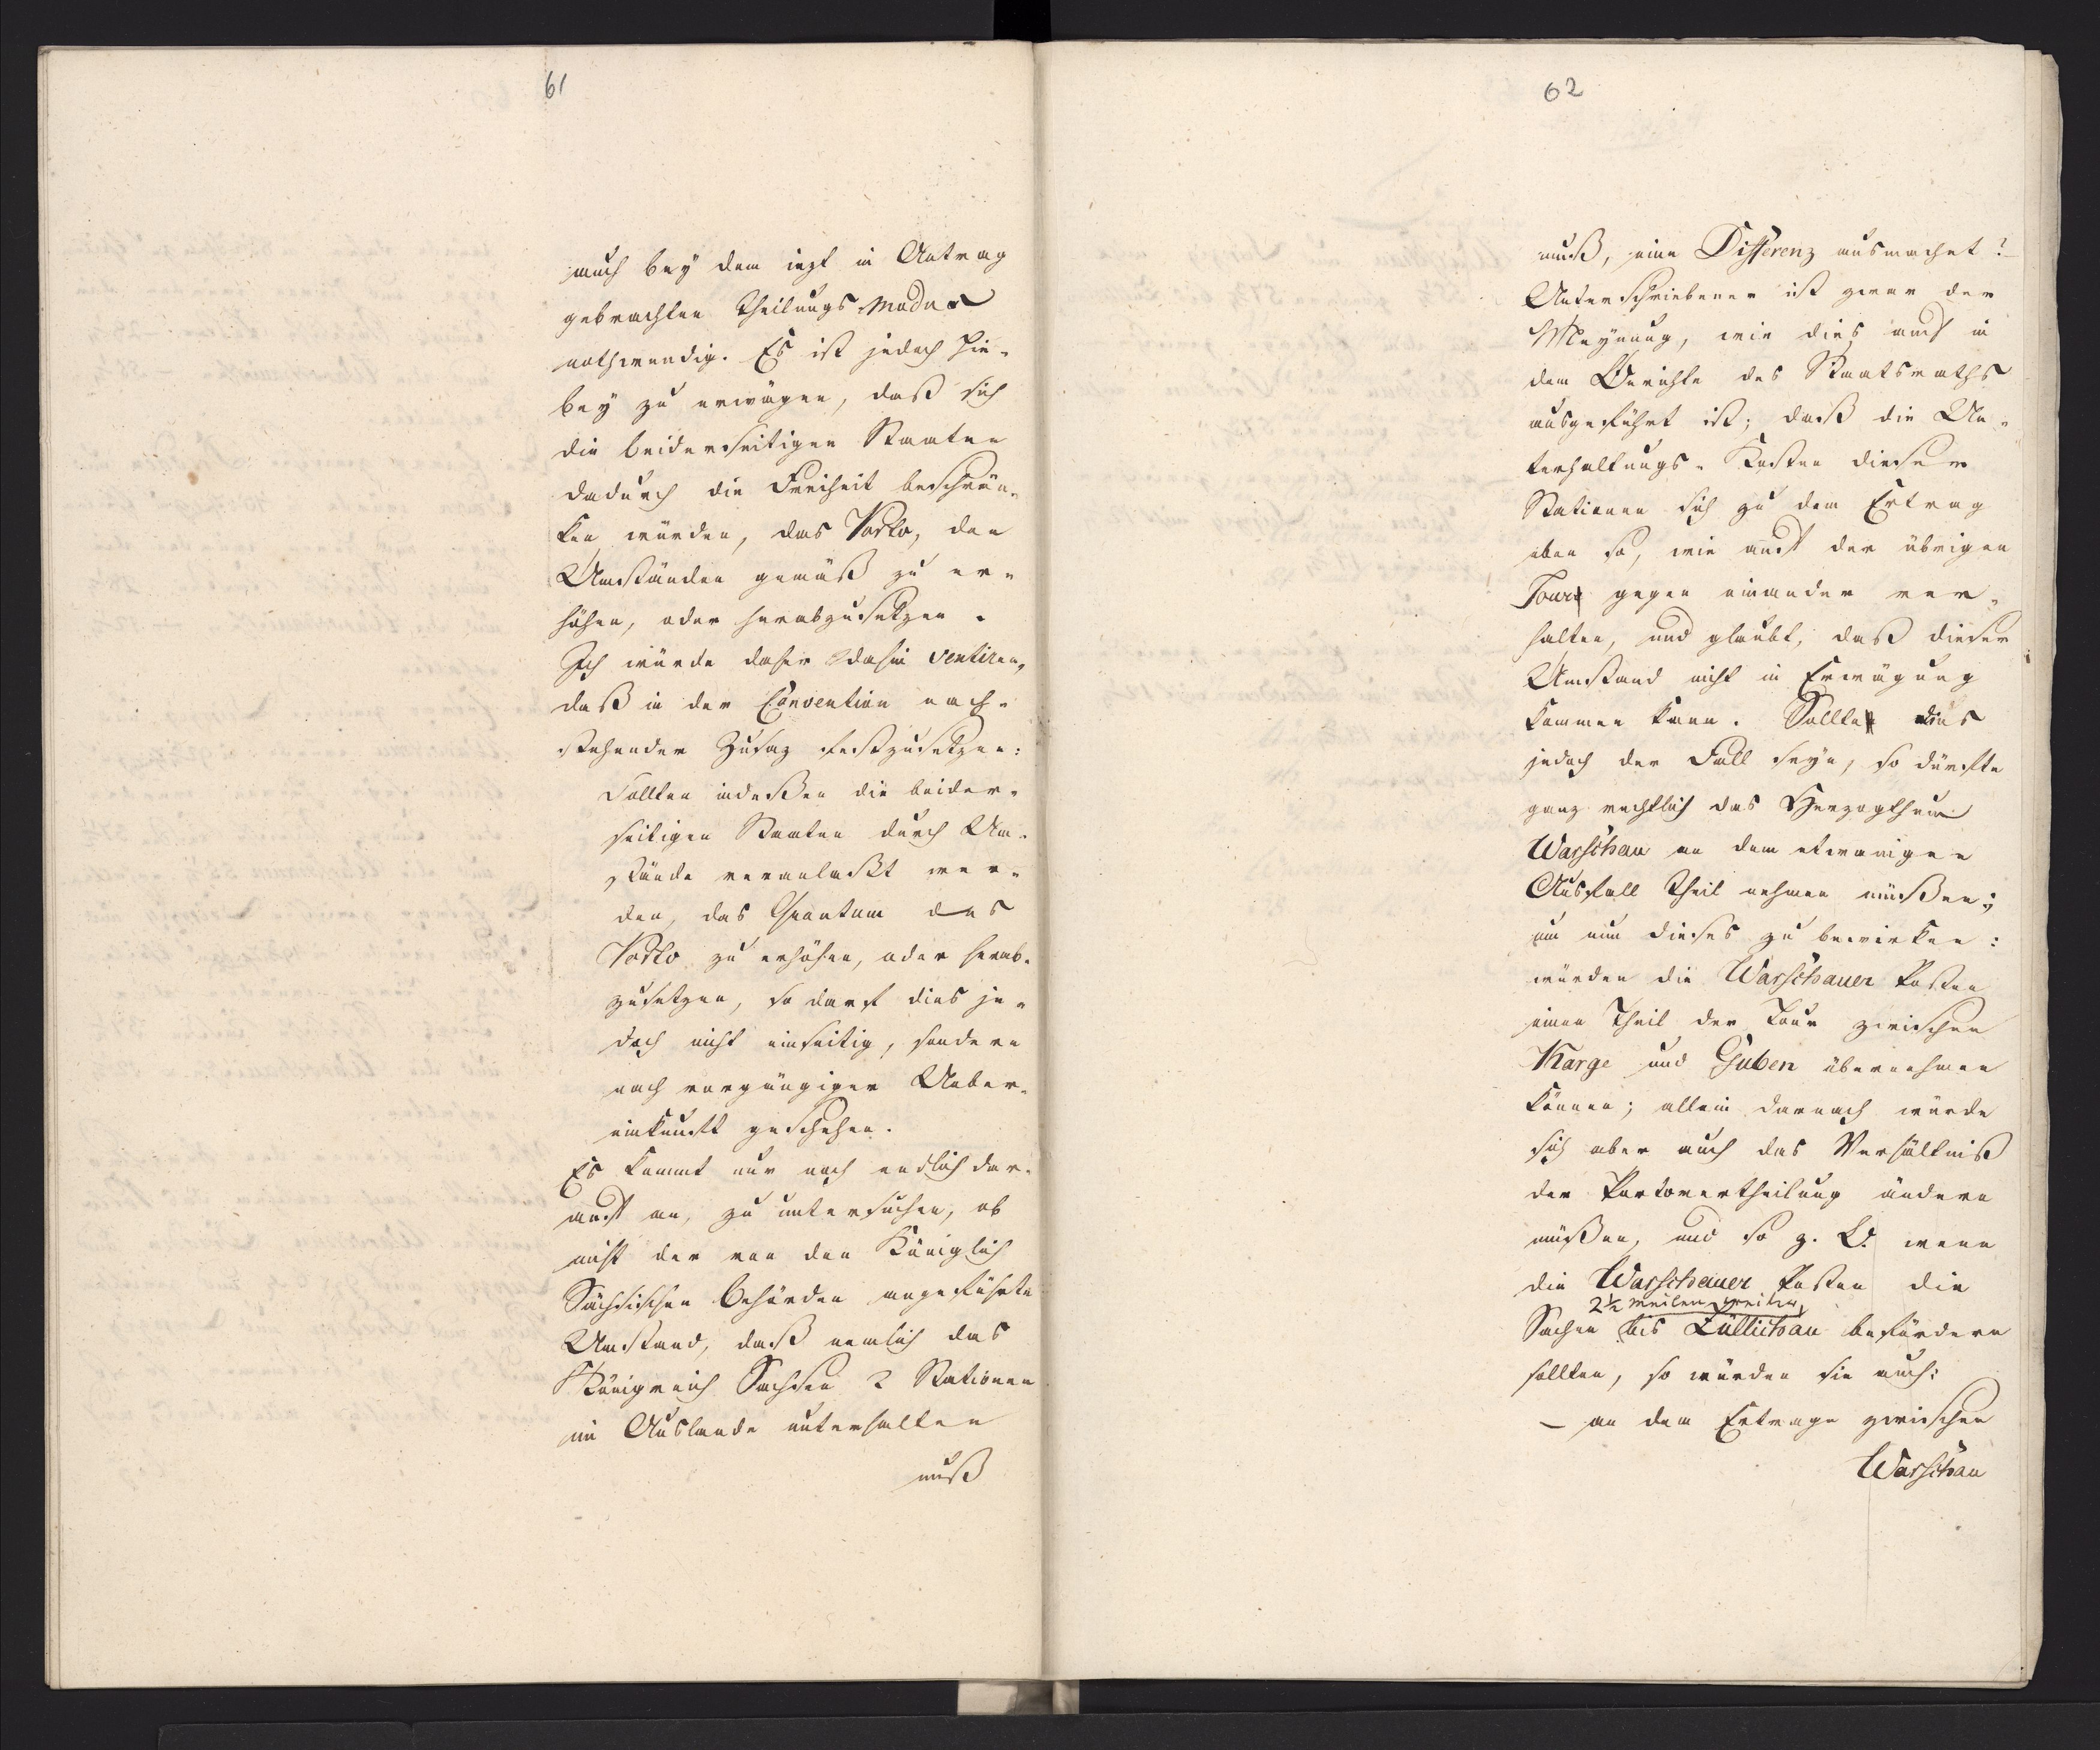 61
auch bey dem iezt in Antrag
gebrachten Theilungs-Modus
nothwendig. Es ist jedoch hie-
bey zu erwägen, daß sich
die beiderseitigen Staaten
dadurch die Freiheit beschrän-
ken würden, das Porto, den
Umständen gemäß zu er-
höhen, oder herabzusetzen.
Ich würde daher dahin sentiren,
daß in der Convention nach-
stehender Zusaz festzusetzen:
Sollten indeßen die beider-
seitigen Staaten durch Um-
stände veranlaßt wer-
den, das Quantum des
Porto zu erhöhen, oder herab-
zusetzen, so darf dies je-
doch nicht einseitig, sondern
nach vorgängiger Ueber-
einkunft geschehen.
Es kommt nur noch endlich dar-
auf an, zu untersuchen, ob
nicht der von den Königlich
Sächsischen Behörden angeführte
Umstand, daß nemlich das
Königreich Sachsen 2 Stationen
im Auslande unterhalten
muß
62
muß, eine Differenz ausmachet?
Unterschriebener ist zwar der
Meynung, wie dies auch in
dem Berichte des Staatsraths
ausgeführt ist; daß die Un-
terhaltungs-Kosten dieser
Stationen sich zu dem Ertrag
eben so, wie auf der übrigen
Tour gegen einander ver-
halten, und glaubt, daß dieser
Umstand nicht in Erwägung
kommen kann. Sollte dies
jedoch der Fall seyn, so dürfte
ganz rechtlich das Herzogthum
Warschau an dem etwanigen
Ausfall Theil nehmen müßen;
um nun dieses zu bewirken:
würden die Warschauer Posten
einen Theil der Tour zwischen
Karge und Guben übernehmen
können; allein darnach würde
sich aber auch das Verhältniß
der Portovertheilung ändern
müßen, und so z. B. wenn
die Warschauer Posten die
2½ Meilen weiter,
Sachen bis Züllichau befördern
sollten, so würden sie auch:
— an dem Ertrage zwischen
Warschau